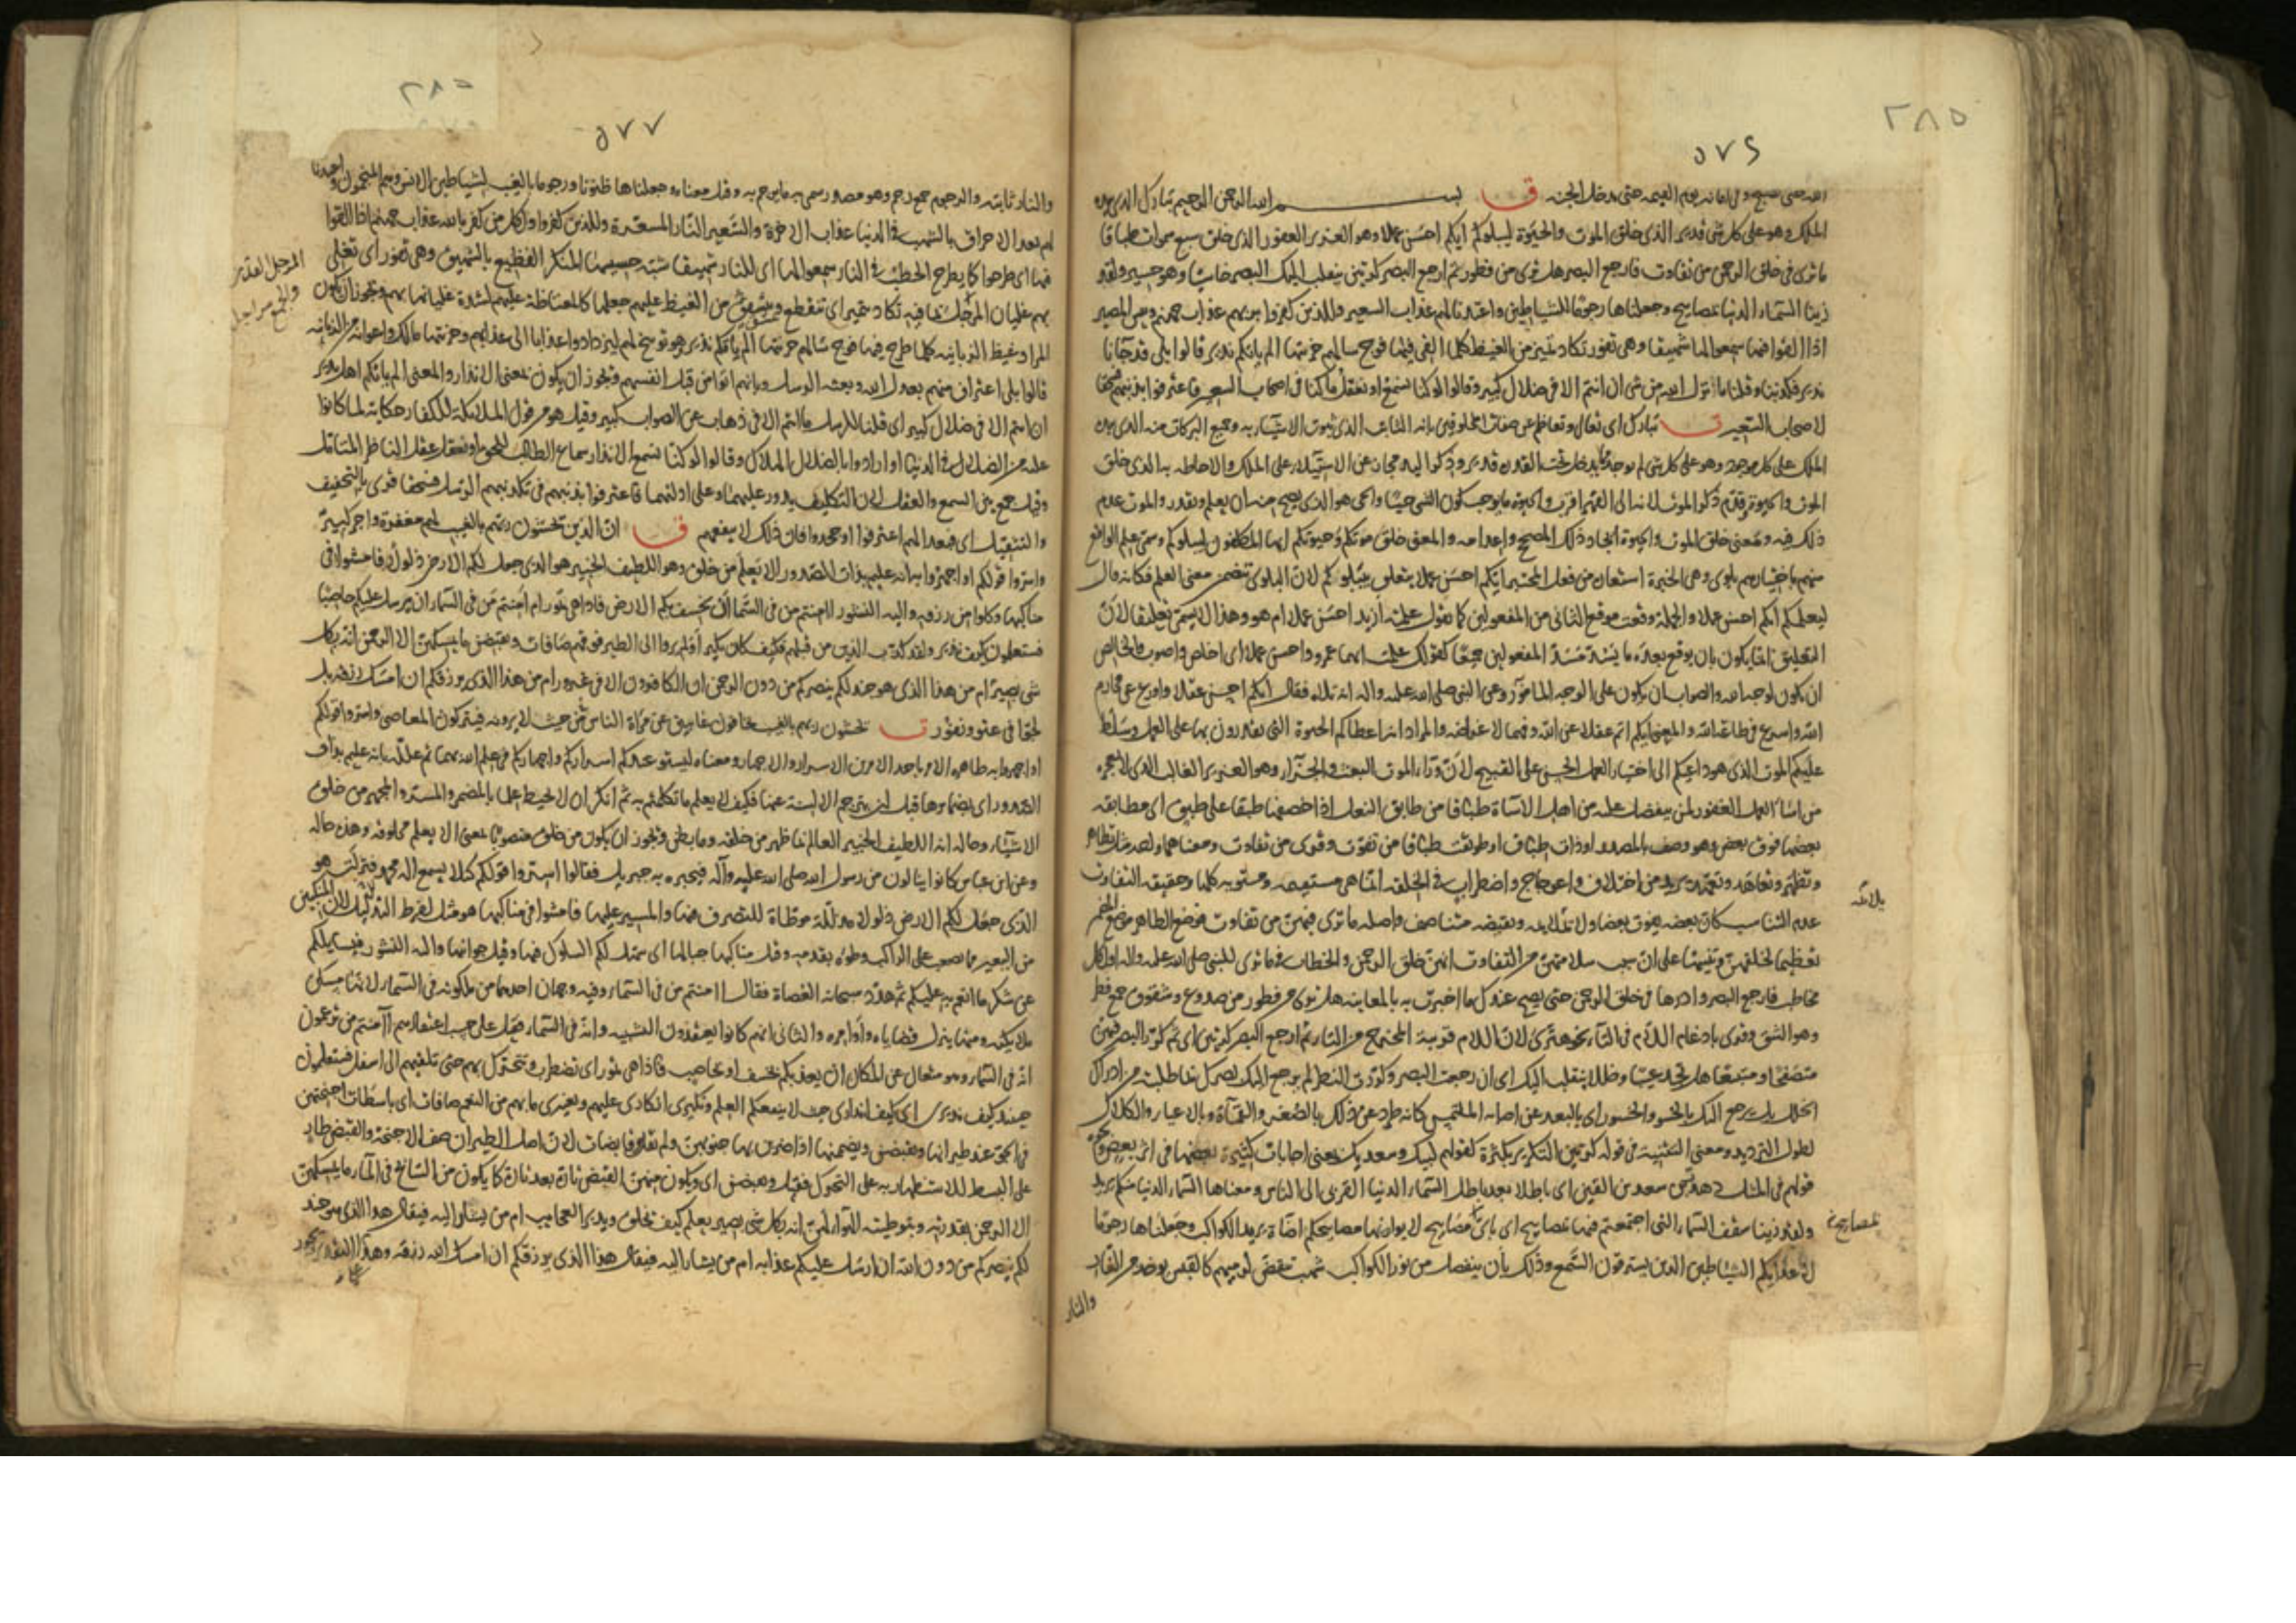 ٢٨٥
٥٧٦
الله حتى يصبح وفي امانه يوم القيمة حتى يدخل الجنة ق بسم الله الرحمن الرحيم تبارك الذي بيده
الملك وهو على كل شئ قدير الذي خلق الموت والحيوة ليبلوكم ايكم احسن عملا وهو العزيز الغفور الذي خلق سبع سموات طباقا
ما ترى في خلق الرحمن من تفاوت فارجع البصر هل ترى من فطور ثم ارجع البصر كرتين ينقلب اليك البصر خاسئا وهو حسير ولقد
زينا السماء الدنيا بمصابيح وجعلناها رجوما للشياطين واعتدنا لهم عذاب السعير وللذين كفروا بربهم عذاب جهنم وبئس المصير
اذا القوا فيها سمعوا لها شهيقا وهي تفور تكاد تميز من الغيظ كلما القى فيها فوج سالهم خزنتها الم ياتكم نذير قالوا بلى قد جاءنا
نذير فكذبنا وقلنا ما نزل الله من شئ ان انتم الا في ضلال كبير وقالوا لو كنا نسمع او نعقل ما كنا في اصحاب السعير فاعترفوا بذنبهم فسحقا
لاصحاب السعير ت تبارك اي تعالى وتعاظم عن صفات المخلوقين بانه الثابت الذي ثبوت الاشياء به وجميع البركات منه الذي بيده
الملك على كل موجود وهو على كل شئ لم يوجد مما يدخل تحت القدرة قدير وذكر اليد مجاز عن الاستيلاء على الملك والاحاطة به الذي خلق
الموت والحيوة قدم ذكر الموت لانه الى القهر اقرب والحيوة ما يوجب كون الشئ حيا والحي هو الذي يصح منه ان يعلم ويقدر والموت عدم
ذلك فيه ومعنى خلق الموت والحيوة ايجاد ذلك المصحح واعدامه والمعنى خلق موتكم وحيوتكم ايها المكلفون ليبلوكم وسمى علم الواقع
منهم باختيارهم بلوى وهي الخبرة استعارة من فعل المختبر ايكم احسن عملا يتعلق بيبلوكم لان البلوى تتضمن معنى العلم فكانه قال
ليعلمكم ايكم احسن عملا والجملة وقعت موقع الثاني من المفعولين كما تقول علمته ازيد احسن عملا ام هو وهذا لا يسمى تعليقا لان
التعليق انما يكون بان يوقع بعده ما يسد مسد المفعولين جميعا كقولك علمت ايهما عمرو واحسن عملا اي اخلص واصوب فالخالص
ان يكون لوجه الله والصواب ان يكون على الوجه المامور وعن النبي صلى الله عليه واله انه تلاه فقال ايكم احسن عقلا واورع عن محارم
الله واسرع في طاعة الله والمعنى ايكم اتم عقلا عن الله وفهما لاغراضه والمراد انه اعطاكم الحيوة التي تقدرون بها على العمل وسلط
عليكم الموت الذي هو داعيكم الى اختيار العمل الحسن على القبيح لان وراءه الموت البعث والجزاء وهو العزيز الغالب الذي لا يعجزه
من اساء العمل الغفور لمن يتفضل عليه من اهل الاساءة طباقا من طابق النعل اذا خصفها طبقا على طبق اي مطابقة
بعضها فوق بعض وهو وصف بالمصدر او ذات طباق او طوبقت طباقا من تفوت وقرئ من تفاوت ومعناهما واحد مثل تظاهر
وتظهر وتعاهد وتعهد يريد من اختلاف واعوجاج واضطراب في الخلقة انما هي مستقيمة ومستوية كلها وحقيقة التفاوت
عدم التناسب كان بعضه يفوت بعضا ولا يلائمه ونقيضه متناصف واصله ما ترى فيهن من تفاوت فوضع الظاهر موضع المضمر
تعظيما لخلقهن وتنبيها على ان سبب سلامتهن من التفاوت انهن خلق الرحمن والخطاب في ما ترى للنبي صلى الله عليه واله او لكل
مخاطب فارجع البصر وادرها في خلق الرحمن حتى يصح عندك ما اخبرت به بالمعاينة هل ترى من فطور من صدوع وشقوق جمع فطر
وهو الشق وقرئ بادغام اللام في التاء نحو هترى لان اللام قريبة المخرج من التاء ثم ارجع البصر كرتين اي ثم كرر البصر فيهن
متصفحا ومتتبعا هل تجد عيبا وخللا ينقلب اليك اي ان رجعت البصر وكررت النظر لم يرجع اليك بصرك بما طلبته من ادراك
الخلل بل يرجع اليك بالخسو والحسور اي بالبعد عن اصابة الملتمس كانه طرد عن ذلك بالصغر والقماءة وبالاعياء والكلال
لطول الترديد ومعنى التثنية في قوله كرتين التكرير بكثرة كقولهم لبيك وسعديك يعني اجابات كثيرة بعضها في اثر بعض ونحوه
قولهم في المثل دهدرين سعد القين اي باطلا بعد باطل السماء الدنيا القربى الى الناس ومعناها السماء الدنيا منكم يريد
ولقد زينا سقف السماء التي اجتمعتم فيها بمصابيح اي باي مصابيح لا يوازنها مصابيحكم اضاءة يريد الكواكب وجعلناها رجوما
لاعدائكم الشياطين الذين يسترقون السمع وذلك بان ينفصل من نور الكواكب شهب تنقض لرميهم كالقبس يوخذ من النار
بلاغة
بمصابيح
والنار
٢٨٥
٥٧٧
والنار ثابتة والرجوم جمع رجم وهو مصدر سمي به ما يرجم به وقيل معناه وجعلناها ظنونا ورجوما بالغيب لشياطين الانس وهم المنجمون واعتدنا
لهم بعد الاحراق بالشهب في الدنيا عذاب الاخرة والسعير النار المسعرة وللذين كفروا ولكل من كفر بالله عذاب جهنم اذا القوا
فيها اي طرحوا كما يطرح الحطب في النار سمعوا لها اي للنار شهيقا شبه حسيسها المنكر الفظيع بالشهيق وهي تفور اي تغلي
بهم غليان المرجل بما فيه تكاد تميز اي تتقطع وينشق من الغيظ عليهم جعلها كالمغتاظة عليهم لشدة غليانها بهم ويجوز ان يكون
المراد غيظ الزبانية كلما طرح فيها فوج سالهم خزنتها الم ياتكم نذير هو توبيخ لهم ليزدادوا عذابا الى عذابهم وخزنتها مالك واعوانه من الزبانية
قالوا بلى اعتراف منهم بعدل الله وبعثة الرسل وبانهم اتوا من قبل انفسهم ويجوز ان يكون بمعنى الانذار والمعنى الم ياتكم اهل نذير
ان انتم الا في ضلال كبير اي قلنا للرسل ما انتم الا في ذهاب عن الصواب كبير وقيل هو من قول الملائكة للكفار حكاية لما كانوا
عليه من الضلال في الدنيا او ارادوا بالضلال الهلاك وقالوا لو كنا نسمع الانذار سماع الطالب للحق او نعقل عقل الناظر المتامل
وقيل جمع بين السمع والعقل لان التكليف يدور عليهما وعلى ادلتهما فاعترفوا بذنبهم في تكذيبهم الرسل فسحقا قرئ بالتخفيف
والتثقيل اي فبعدا لهم اعترفوا او جحدوا فان ذلك لا ينفعهم ق ان الذين يخشون ربهم بالغيب لهم مغفرة واجر كبير
واسروا قولكم او اجهروا به انه عليم بذات الصدور الا يعلم من خلق وهو اللطيف الخبير هو الذي جعل لكم الارض ذلولا فامشوا في
مناكبها وكلوا من رزقه واليه النشور اامنتم من في السماء ان يخسف بكم الارض فاذا هي تمور ام امنتم من في السماء ان يرسل عليكم حاصبا
فستعلمون كيف نذير ولقد كذب الذين من قبلهم فكيف كان نكير اولم يروا الى الطير فوقهم صافات ويقبضن ما يمسكهن الا الرحمن انه بكل
شئ بصير ام من هذا الذي هو جند لكم ينصركم من دون الرحمن ان الكافرون الا في غرور ام من هذا الذي يرزقكم ان امسك رزقه بل
لجوا في عتو ونفور ت يخشون ربهم بالغيب يخافون غائبين عن مراة الناس من حيث لا يرونه فيتركون المعاصي واسروا قولكم
او اجهروا به ظاهره الامر باحد الامرين الاسرار والاجهار ومعناه ليستو عندكم اسراركم واجهاركم في علم الله بهما ثم علله بانه عليم بذات
الصدور اي بضمائرها قبل ان يترجم الالسنة عنها فكيف لا يعلم ما تكلم به ثم انكر ان لا يحيط علما بالمضمر والمسر والمجهر من خلق
الاشياء وحاله انه اللطيف الخبير العالم بما ظهر من خلقه وما بطن ويجوز ان يكون من خلق منصوبا بمعنى الا يعلم مخلوقه وهذه حاله
وعن ابن عباس كانوا ينالون من رسول الله صلى الله عليه وآله فيخبره به جبريل فقالوا اسروا قولكم كيلا يسمع اله محمد فنزلت هو
الذي جعل لكم الارض ذلولا مذللة موطاة للتصرف فيها والمسير عليها فامشوا في مناكبها هو مثل لفرط التذليل لان المنكبين
من البعير مما يصعب على الراكب وطؤه بقدميه وقيل مناكبها جبالها اي سهل لكم السلوك فيها وقيل جوانبها واليه النشور فيسايلكم
عن شكر ما انعم به عليكم ثم هدد سبحانه العصاة فقال اامنتم من في السماء وفيه وجهان احدهما من ملكوته في السماء لانها مسكن
ملائكته ومنها ينزل قضاياه واوامره والثاني انهم كانوا يعتقدون التشبيه وانه في السماء فقيل على حسب اعتقادهم اامنتم من تزعمون
انه في السماء وهو متعال عن المكان ان يعذبكم بخسف او بحاصب فاذا هي تمور اي تضطرب وتتحرك بهم حتى تلقيهم الى اسفل فستعلمون
حينئذ كيف نذيري اي كيف انذاري حيث لا ينفعكم العلم ونكيري انكاري عليهم وتغييري ما بهم من النعم صافات اي باسطات اجنحتهن
في الجو عند طيرانها ويقبضن ويضممنها اذا ضربن بها جنوبهن ولم يقل قابضات لان اصل الطيران صف الاجنحة والقبض طار
على البسط للاستظهار به على التحرك فقيل ويقبضن اي ويكون منهن القبض تارة بعد تارة كما يكون من السابح في الماء ما يمسكهن
الا الرحمن بقدرته وبتوطيئه الهواء لهن انه بكل شئ بصير يعلم كيف يخلق ويدبر العجائب ام من يشار اليه فيقال هذا الذي هو جند
لكم ينصركم من دون الله ان ارسل عليكم عذابه ام من يشار اليه فيقال هذا الذي يرزقكم ان امسك الله رزقه وهذا التقدير يجوز
المرجل القدر
والجمع مراجل